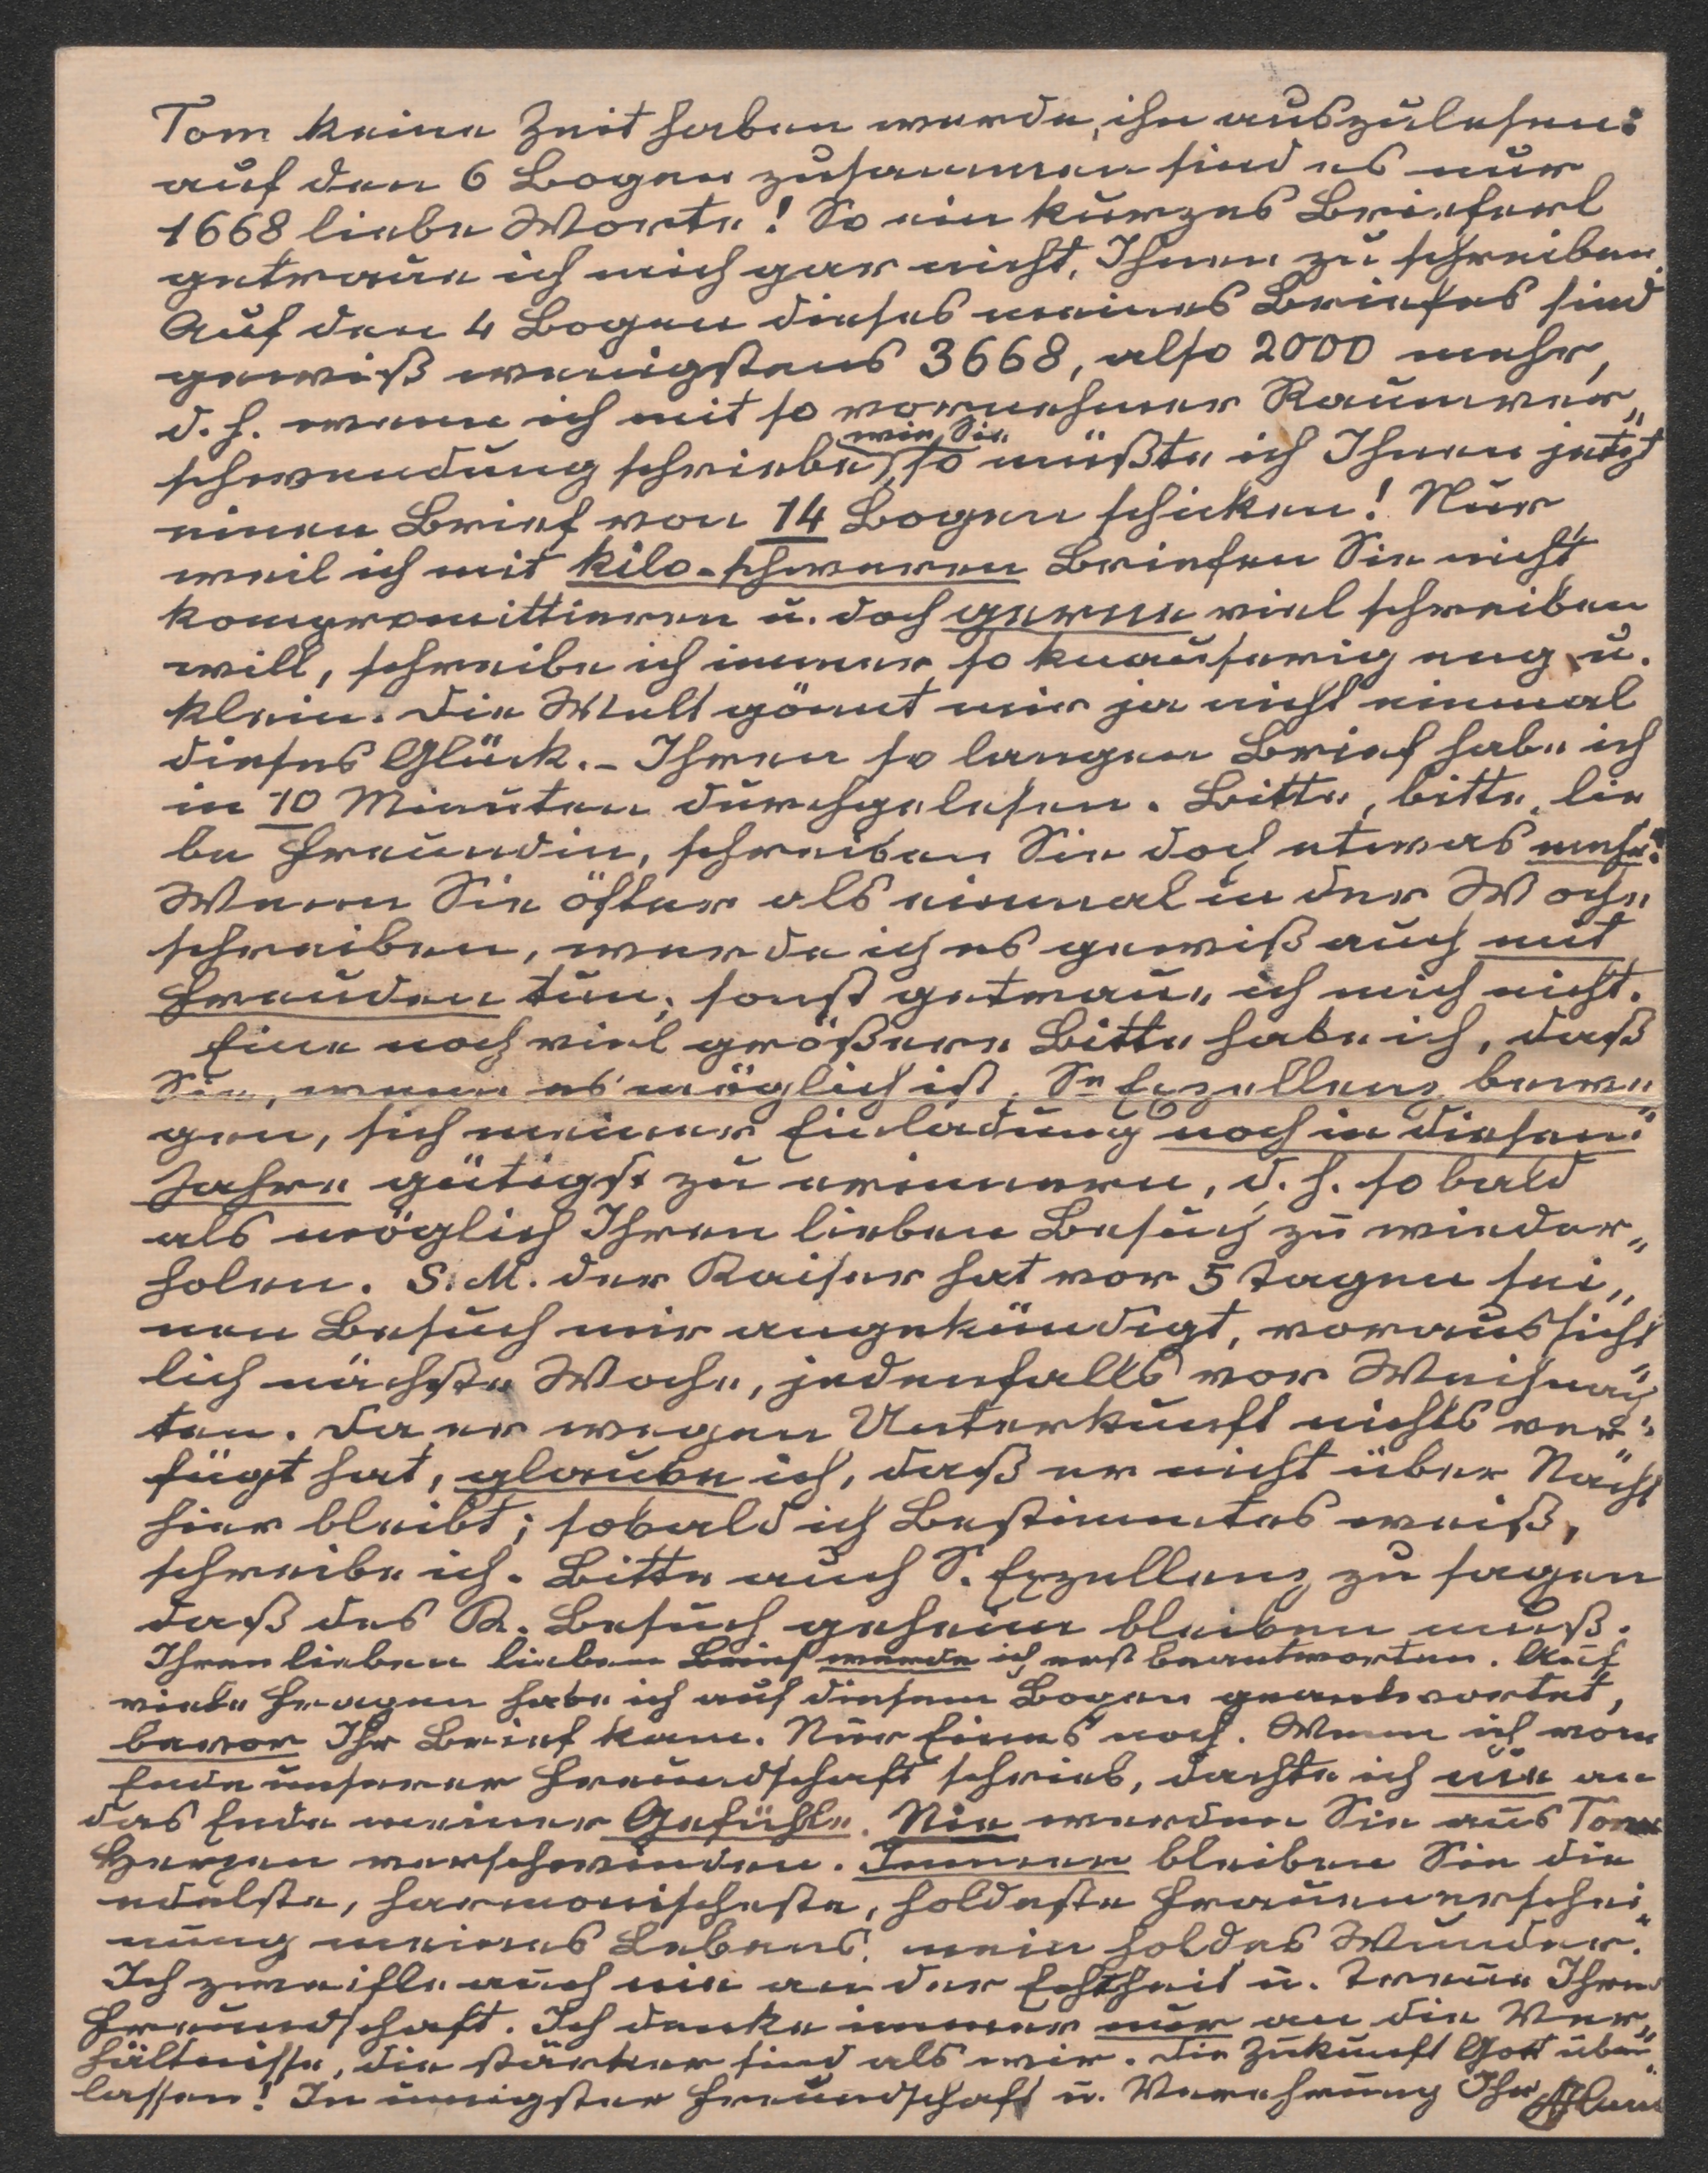 Tom keine Zeit haben werde, ihn auszulesen:
auf den 6 Bogen zusammen sind es nur
1668 liebe Worte! So ein kurzes Brieferl
getraue ich mich gar nicht, Ihnen zu schreiben.
Auf den 4 Bogen dieses meines Briefes sind
gewiß wenigstens 3668, also 2000 mehr,
d. h. wenn ich mit so vornehmer Raumver„
wie Sie
schwendung schriebe, so müßte ich Ihnen jetzt
einen Brief von 14 Bogen schicken! Nur
weil ich mit kilo-schweren Briefen Sie nicht
kompromittieren u. doch gerne viel schreiben
will, schreibe ich immer so knauserig eng u.
klein. Die Welt gönnt mir ja nicht einmal
dieses Glück. – Ihren so langen Brief habe ich
in 10 Minuten durchgelesen. Bitte, bitte, lie
be Freundin, schreiben Sie doch etwas mehr!
Wenn Sie öfter als einmal in der Woche
schreiben, werde ich es gewiß auch mit
Freuden tun, sonst getraue ich mich nicht.
Eine noch viel größere Bitte habe ich, daß
Sie, wenn es möglich ist, Se Exzellenz bewe
gen, sich meiner Einladung noch in diesem
Jahre gütigst zu erinnern, d. h. so bald
als möglich Ihren lieben Besuch zu wieder„
holen. S. M. der Kaiser hat vor 5 Tagen sei„
nen Besuch mir angekündigt, voraussicht
lich nächste Woche, jedenfalls vor Weihnach
ten. Da er wegen Unterkunft nichts ver„
fügt hat, glaube ich, daß er nicht über Nacht
hier bleibt; sobald ich Bestimmtes weiß,
schreibe ich. Bitte auch S. Exzellenz zu sagen
daß des K. Besuch geheim bleiben muß.
Ihren lieben lieben Brief werde ich erst beantworten. Auf
viele Fragen habe ich auf diesem Bogen geantwortet,
bevor Ihr Brief kam. Nur Eines noch. Wenn ich vom
Ende unserer Freundschaft schrieb, dachte ich nie an
das Ende meiner Gefühle. Nie werden Sie aus Toms
Herzen verschwinden. Immer bleiben Sie die
edelste, harmonischeste, holdeste Frauenerschei„
nung meines Lebens, mein holdes Wunder.
Ich zweifle auch nie an der Echtheit u. Treue Ihrer
Freundschaft. Ich denke immer nur an die Ver„
hältnisse, die stärker sind als wir. Die Zukunft Gott über„
lassen! In innigster Freundschaft u. Verehrung Ihr